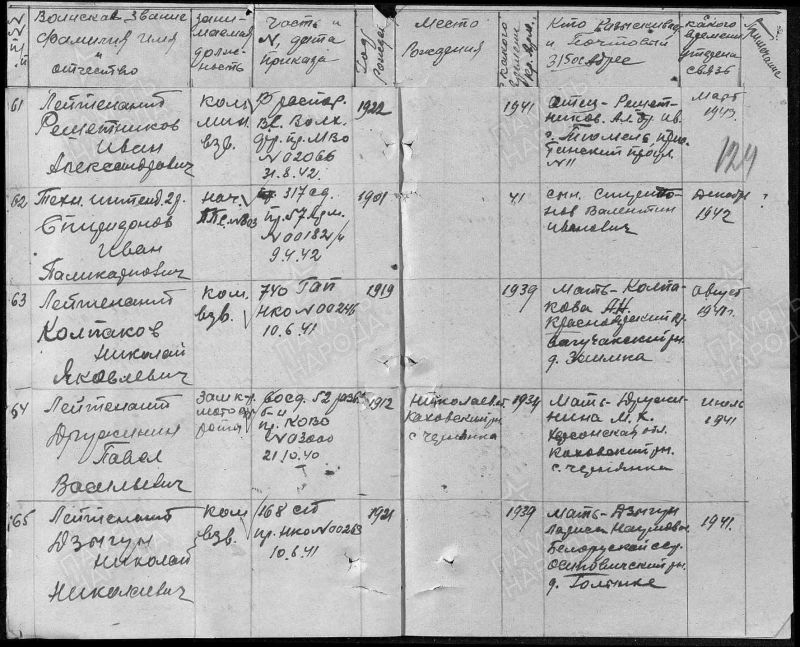 №№ п/п
Воинское звание
фамилия имя
и
отчество
зани-
маемая
долж-
ность
Часть и
№, дата
приказа
Год
рожден.
Место
Рождения
С какого
времени
Кто Разыскивает
и Почтовый
адрес
с какого
времени
утеряна
связь
Примечание
61
Лейтенант
Решетников
Иван
Александрович
ком.
мин.
взв.
В распор.
ВС Волх.
фр. пр. МВО
№ 02066
31.8.42.
1922
1941
отец- Решет-
ников. Ал-др Ив.
г. Гомель,
№ 11
Март
194
124
62
Техн. интенд. 2 р.
Спиридонов
Иван
Поликарпович
нач.
ППС № 803
317 сд
пр. 57 Арм.
№ 00182/н
9.4.42
1901
41
сын.
Валентин
Иванович
Декабрь
1942
63
Лейтенант
Колпаков
Николай
Яковлевич
ком.
взв.
740 Гап
НКО № 00246
10.6.41
1919
1939
Мать- Колпа-
кова А.Н.
Красноярский кр.
Богучанский рн.
д.
август
1941 г.
64
Лейтенант
Дружинин
Павел
Васильевич
зам. к-р
мото
рота
восд. 52 разв.
б-н
пр. КОВО
№ 03000
21.10.40
1912
Николаевск.
Каховский рн
с Чернянка
1934
Мать- Дружи-
нина М. К.
Херсонская обл.
Каховский рн.
с. Чернянка
июль
1941
65
Лейтенант
Дзыгун
Николай
Николаевич
ком.
взв.
168 сп
пр. НКО № 00263
10.6.41
1921
1939
Мать- Дзыгун
Лариса Наумовн.
Белорусской сср.
Осиповичский рн.
д. Голынка
1941.
ПАМЯТЬ
НАРОДА